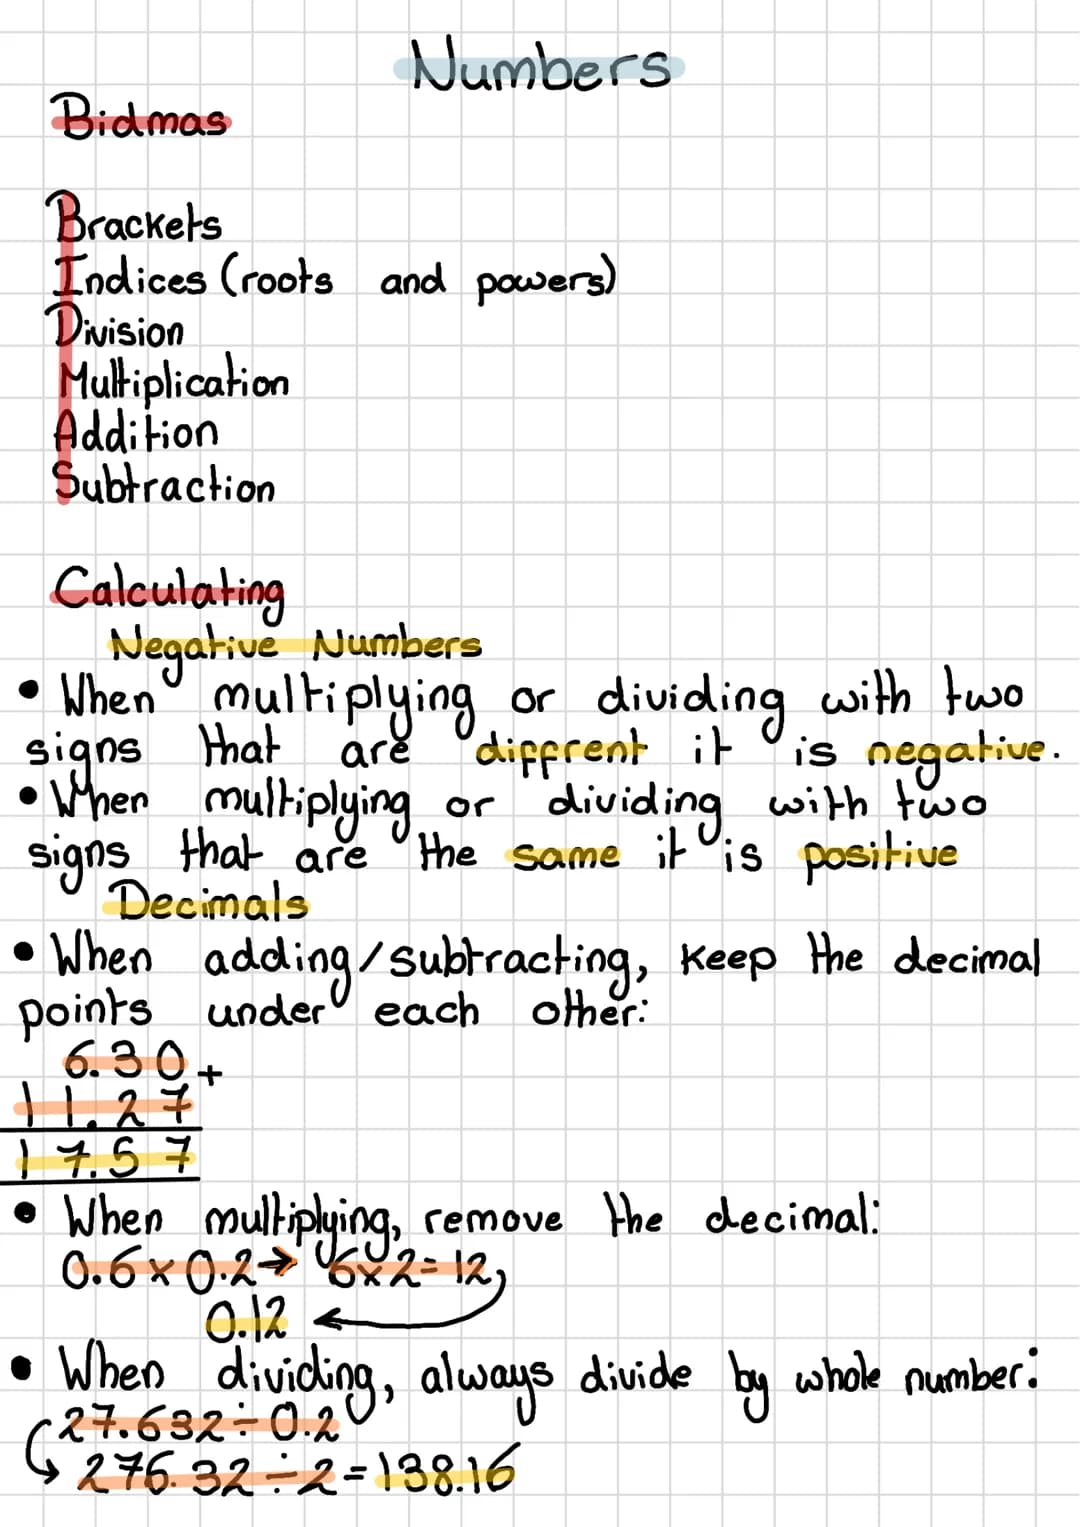 Numbers
Bidmas
Brackets
Indices (roots and powers)
Division
Multiplication
Addition
Subtraction
Calculating
Negative Numbers
• When multiplying or dividing with two
signs that are diffrent it is negative.
• When multiplying or dividing with two
signs that are the same it is positive
Decimals
• When adding/subtracting, keep the decimal
points under each other:
6.30 +
11.27
17.57
• When multiplying, remove the decimal:
0.6 × 0.2 → 6×2=12,
0.12
• When dividing, always divide by whole number:
27.632 ÷ 0.2
276.32 ÷ 2 = 138.16